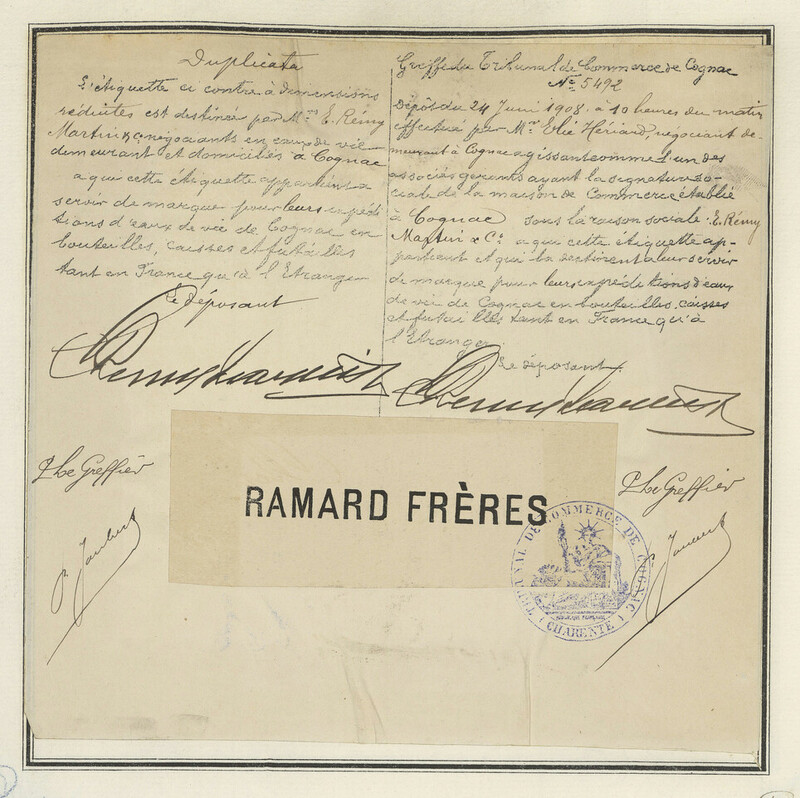 Duplicata
L'étiquette ci contre à dimensions
réduites est destinée par Mrs E. Rémy
Martin & Co négociants en eaux de vie
demeurant et domiciliés à Cognac
a que cette étiquette appartient a
servir de marque pour leurs expédi
tions d'eaux de vie de Cognac en
bouteilles, caisses et futailles
tant en France qu'à l'Etranger
Le déposant
E Remy Martin & Co
Greffe du Tribunal de Commerce de Cognac
No 5492
Dépôt du 24 Juin 1908 à 10 heures du matin
effectué par Mr Elié Hériard, négociant de-
meurant à Cognac agissant comme l'un des
associés gerants ayant la signature so-
ciale de la maison de Commerce établie
à Cognac sous la raison sociale E. Rémy
Martin & Co a qui cette étiquette ap-
partient et qui la destinent a leur servir
de marque pour leurs expéditions d'eaux
de vie de Cognac en bouteilles, caisses
et futailles tant en France qu'à
l'Etranger
Le déposant
E Remy Martin & Co
P. Le Greffier
P. Le Greffier
RAMARD FRÈRES
TRIBUNAL DE COMMERCE DE COGNAC
(CHARENTE)